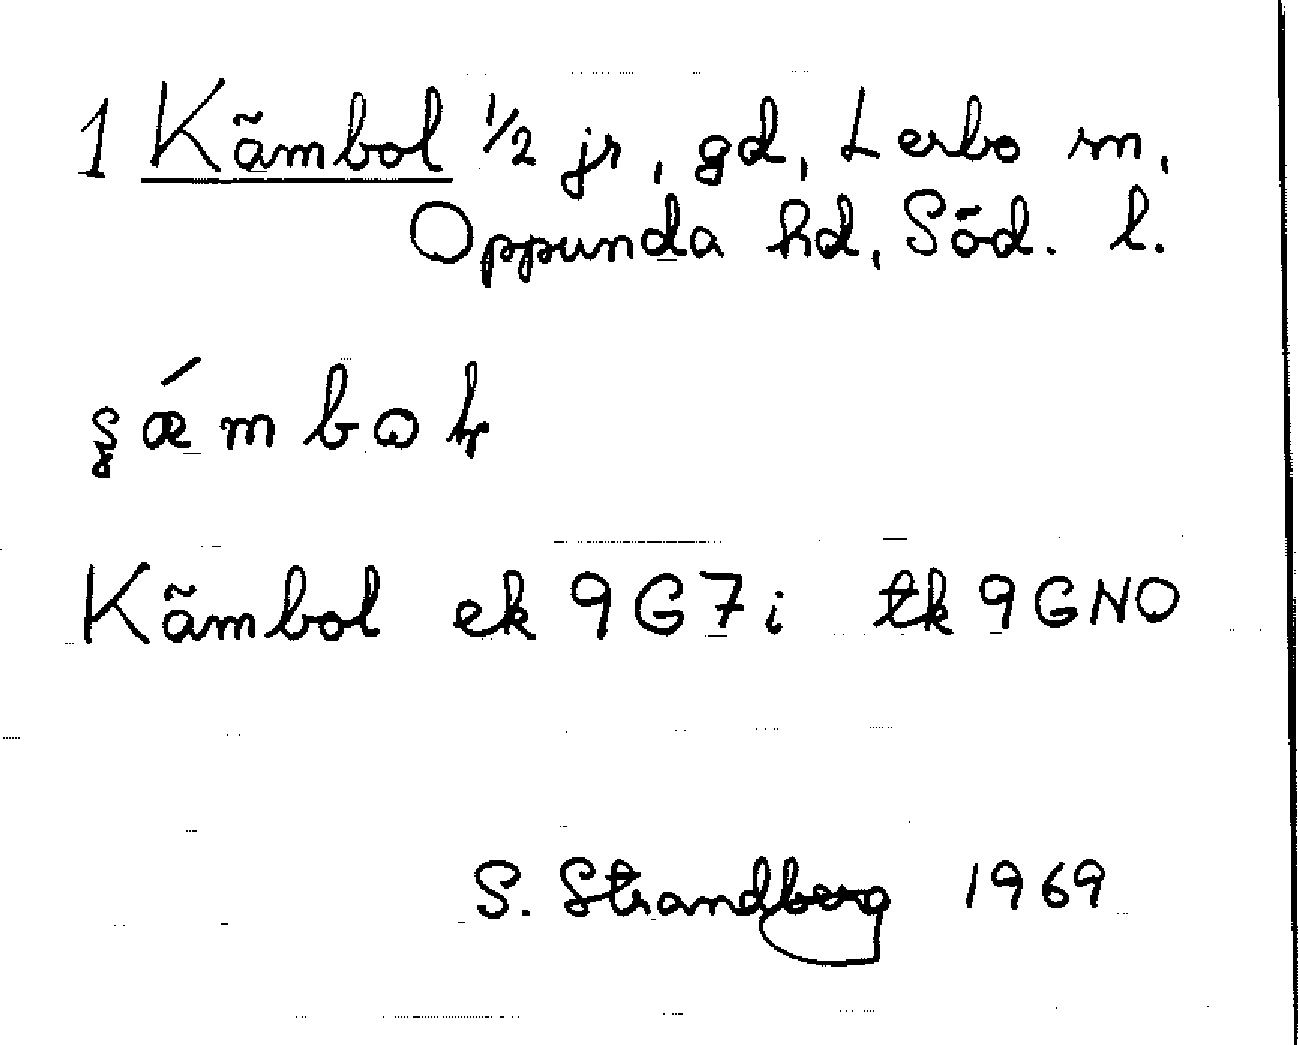 1 Kãmbol 1/2 jr, gd, Lerbo sn,
Oppunda hd, Sõd. l.
Kãmbol ek 9G7i tk 9GNO
S. Strandberg 1969